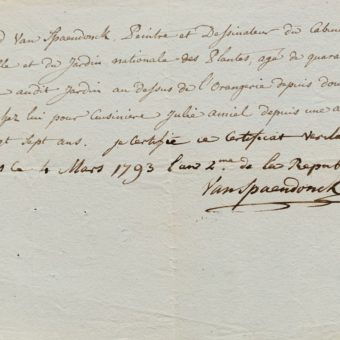 d Van Spaendonck, Peintre et Dessinateur du Cabine
lle et du Jardin nationale des Plantes, agé de quara
e audit Jardin au dessus de l'Orangerie depuis dou
chez lui pour cuisiniere Julie amiel depuis une a
pt Sept ans. je certifie ce Certificat Verita
s ce 4 Mars 1793 l'an 2.me de la Republ
Van Spaendonck